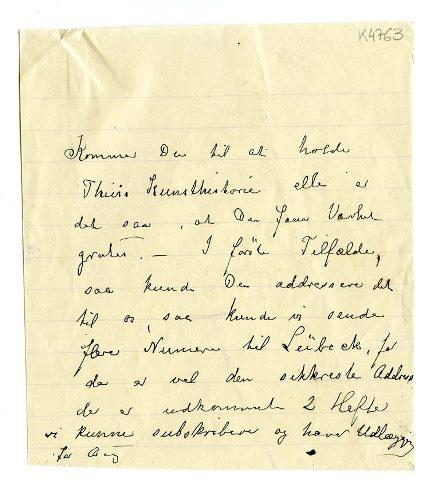 K4763
Kommer De til at holde
Thiis Kunsthistorie eller er
det saa, at De faar Værket
gratis. — I første Tilfælde,
saa kunde De addressere det
til os, saa kunde vi sende
flere Numere til Lübeck, for
der er vel den sikkreste Address
der er udkommet 2 Hefter
vi kunne subskribere og have Udlægg
for